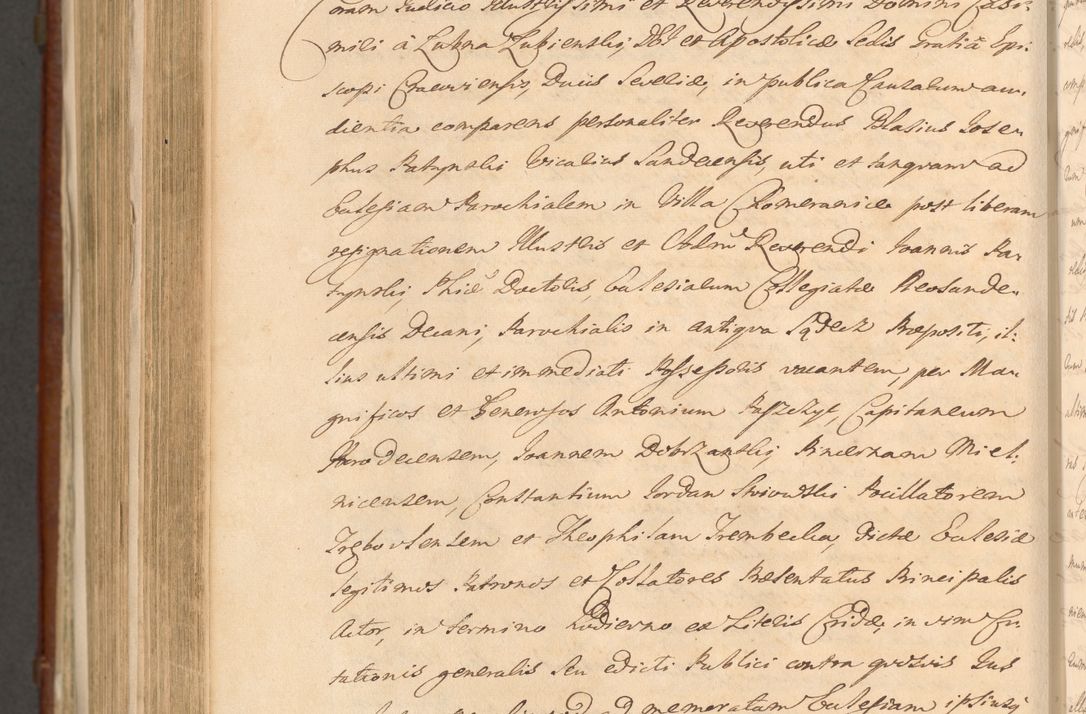 oram Judicio Illustrissimi et Reverendissimi Domini Casi-
miri à Lubna Lubienski, DEI et Apostolicæ Sedis Gratiâ Epi-
scopi Cracoviensis, Ducis Severiæ, in publica Causarum au-
dientia comparens personaliter Reverendus Blasius Jose-
phus Ratynski Vicarius Sandecensis, uti et tanquam ad
Ecclesiam Parochialem in Villa Chomeranice post liberam
resignationem Illustris et Admr̃ Reverendi Joannis Ra-
tynski, Phiæ Doctoris, Ecclesiarum Collegiatæ Neosande-
censis Decani, Parochialis in antiqva Sądecz Præpositi, il-
lius ultimi et immediati Possessoris vacantem, per Ma-
gnificos et Generosos Antonium Raszczyc, Capitaneum
Grodecensem, Joannem Dobrzanski, Pincernam Miel-
nicensem, Constantium Jordan Stoiowski Pocillatorem
Trębovlensem et Theophilam Trembecka, dictæ Ecclesiæ
legitimos Patronos et Collatores Præsentatus Principalis
Actor, in termino hodierno ex Literis Cridæ, in vim Ci-
tationis generalis seu edicti Publici contra qvosvis Jus
ad memoratam Ecclesiam ipsiusq